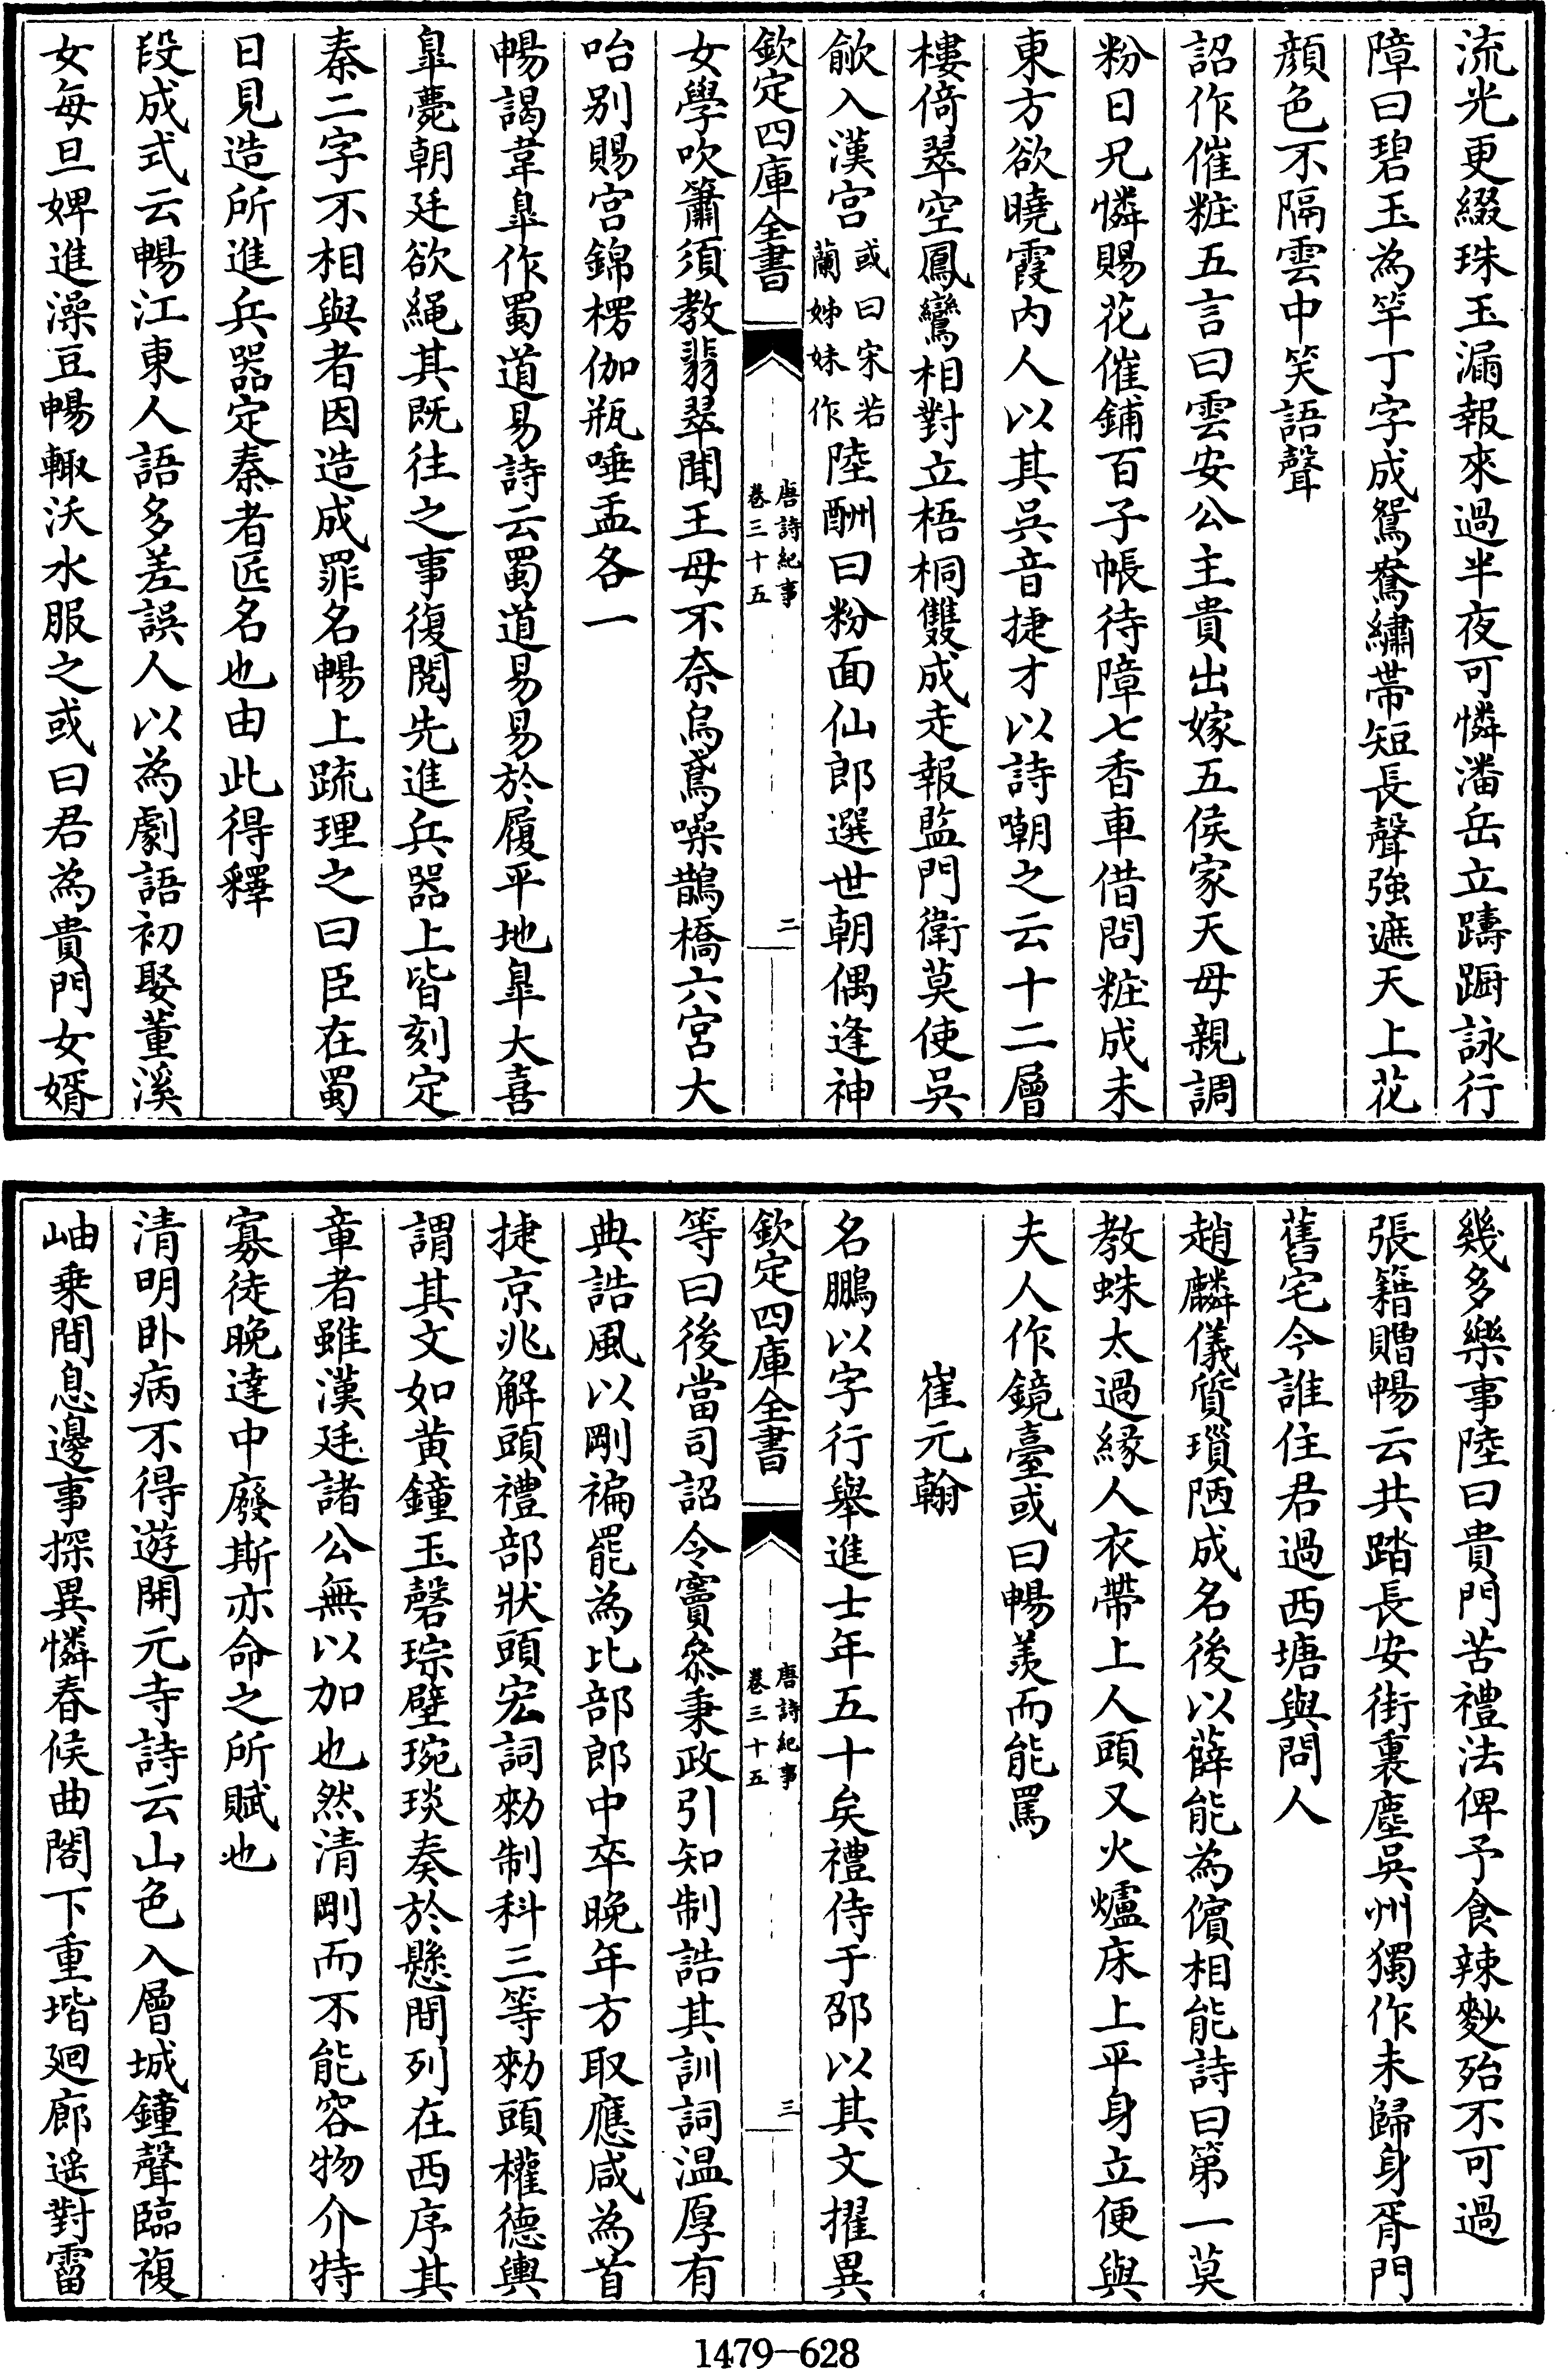 流光更綴珠玉漏報來過半夜可憐潘岳立躊蹰詠行
障曰碧玉為竿丁字成鴛鴦繡帶短長聲強遮天上花
顔色不隔雲中笑語聲
詔作催粧五言曰雲安公主貴出嫁五侯家天母親調
粉日兄憐賜花催鋪百子帳待障七香車借問粧成未
東方欲曉霞内人以其吳音捷才以詩嘲之云十二層
樓倚翠空鳳鸞相對立梧桐雙成走報監門衛莫使吳
歈入漢宫或曰宋若蘭姊妹作陸酬曰粉面仙郎選世朝偶逢神
欽定四庫全書
唐詩紀事
卷三十五
二
女學吹簫須教翡翠聞王母不奈烏鳶噪鵲橋六宮大
咍别賜宫錦楞伽瓶唾盂各一
暢謁韋臯作蜀道易詩云蜀道易易於履平地臯大喜
臯薨朝廷欲繩其既往之事復閱先進兵器上皆刻定
秦二字不相與者因造成罪名暢上疏理之曰臣在蜀
日見造所進兵器定秦者匠名也由此得釋
段成式云暢江東人語多差誤人以為劇語初娶董溪
女每旦婢進澡豆暢輙沃水服之或曰君為貴門女婿
幾多樂事陸曰貴門苦禮法俾予食辣麨殆不可過
張籍贈暢云共踏長安街裏塵吳州獨作未歸身胥門
舊宅今誰住君過西塘與問人
趙麟儀質瑣陋成名後以薛能為儐相能詩曰第一莫
教蛛太過緣人衣帶上人頭又火爐床上平身立便與
夫人作鏡臺或曰暢羨而能罵
崔元翰
名鵬以字行舉進士年五十矣禮侍于邵以其文擢異
欽定四庫全書
唐詩紀事
卷三十五
三
等曰後當司詔令竇叅秉政引知制誥其訓詞温厚有
典誥風以剛褊罷為比部郎中卒晚年方取應咸為首
捷京兆解頭禮部狀頭宏詞勅制科三等勅頭權德輿
謂其文如黄鐘玉磬琮璧琬琰奏於懸間列在西序其
章者雖漢廷諸公無以加也然清剛而不能容物介特
寡徒晚達中廢斯亦命之所賦也
清明卧病不得遊開元寺詩云山色入層城鐘聲臨複
岫乗間息邊事探異憐春候曲閣下重堦廻廊遥對霤
1479-628